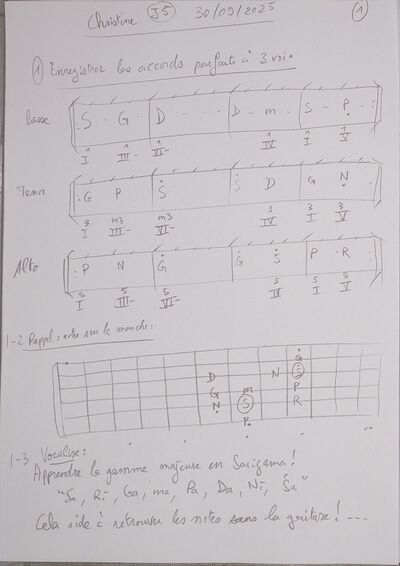 Christine J5 30/09/2025 1
1 Enregistrer les accords parfaits à 3 voix
Basse
S G D D m S P
1 1 1 1 1 1
I III- VI- IV I V
Tenor
G P S S D G N
3 m3 m3 3 3 3
I III- VI- IV I V
Alto
P N G G S P R
5 5 5 5 5 5
I III- VI- IV I V
1-2 Rappel: notes sur le manche:
G
D N S
G m P
N S R
P
1-3 Vocalise:
Apprendre la gamme majeure en Sarigama!
"Sa, Ri, Ga, ma, Pa, Da, Ni, Ṡa"
Cela aide à retrouver les notes sans la guitare! ---